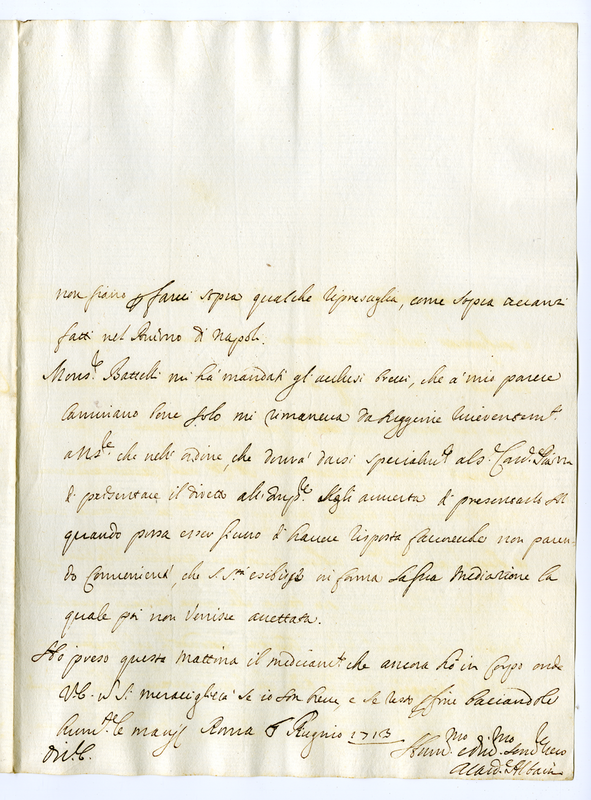 non siano per farci sopra qualche ripresaglia, come sopra avanzi
fatti nel Regno di Napoli.
Mons.r Battelli mi hà mandati gl'acclusi brevi, che a mio parere
Caminano bene solo mi rimaneva da
che nell'ordine, che dovrà darsi specialm.te al S.r Card.
di presentare il diretto all' Egli avverta di presentarlo
quando possa esser sicuro di havere risposta favorevole non paren-
do conveniente, che S. S.tà esibisca in forma la sua mediazione la
quale poi non venisse accettata.
Hò preso questa mattina il medicam.to che ancora hò in corpo onde
V.E. non si meraviglierà se io son breve, e se resto per fine baciandole
hum.te le mani Roma 6 Giugno 1713
Di V.E.
Hum.mo Ser.e vero
Card. Albani